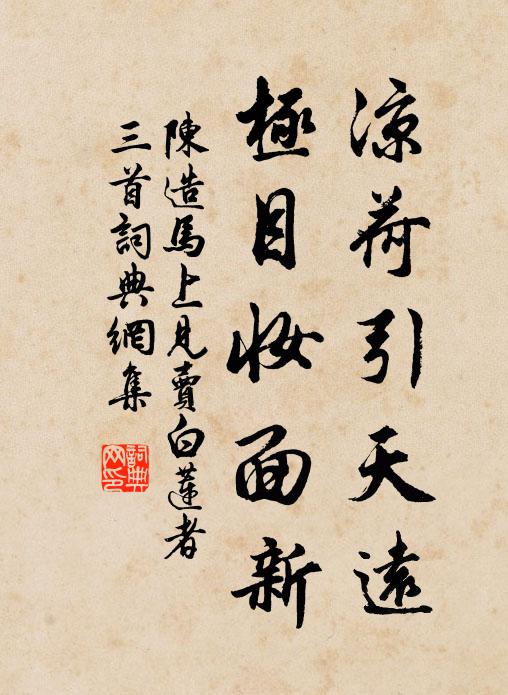 涼荷引天遠
極目妝面新
陳造馬上見賣白蓮者
三首詞典網集
詞典
网印